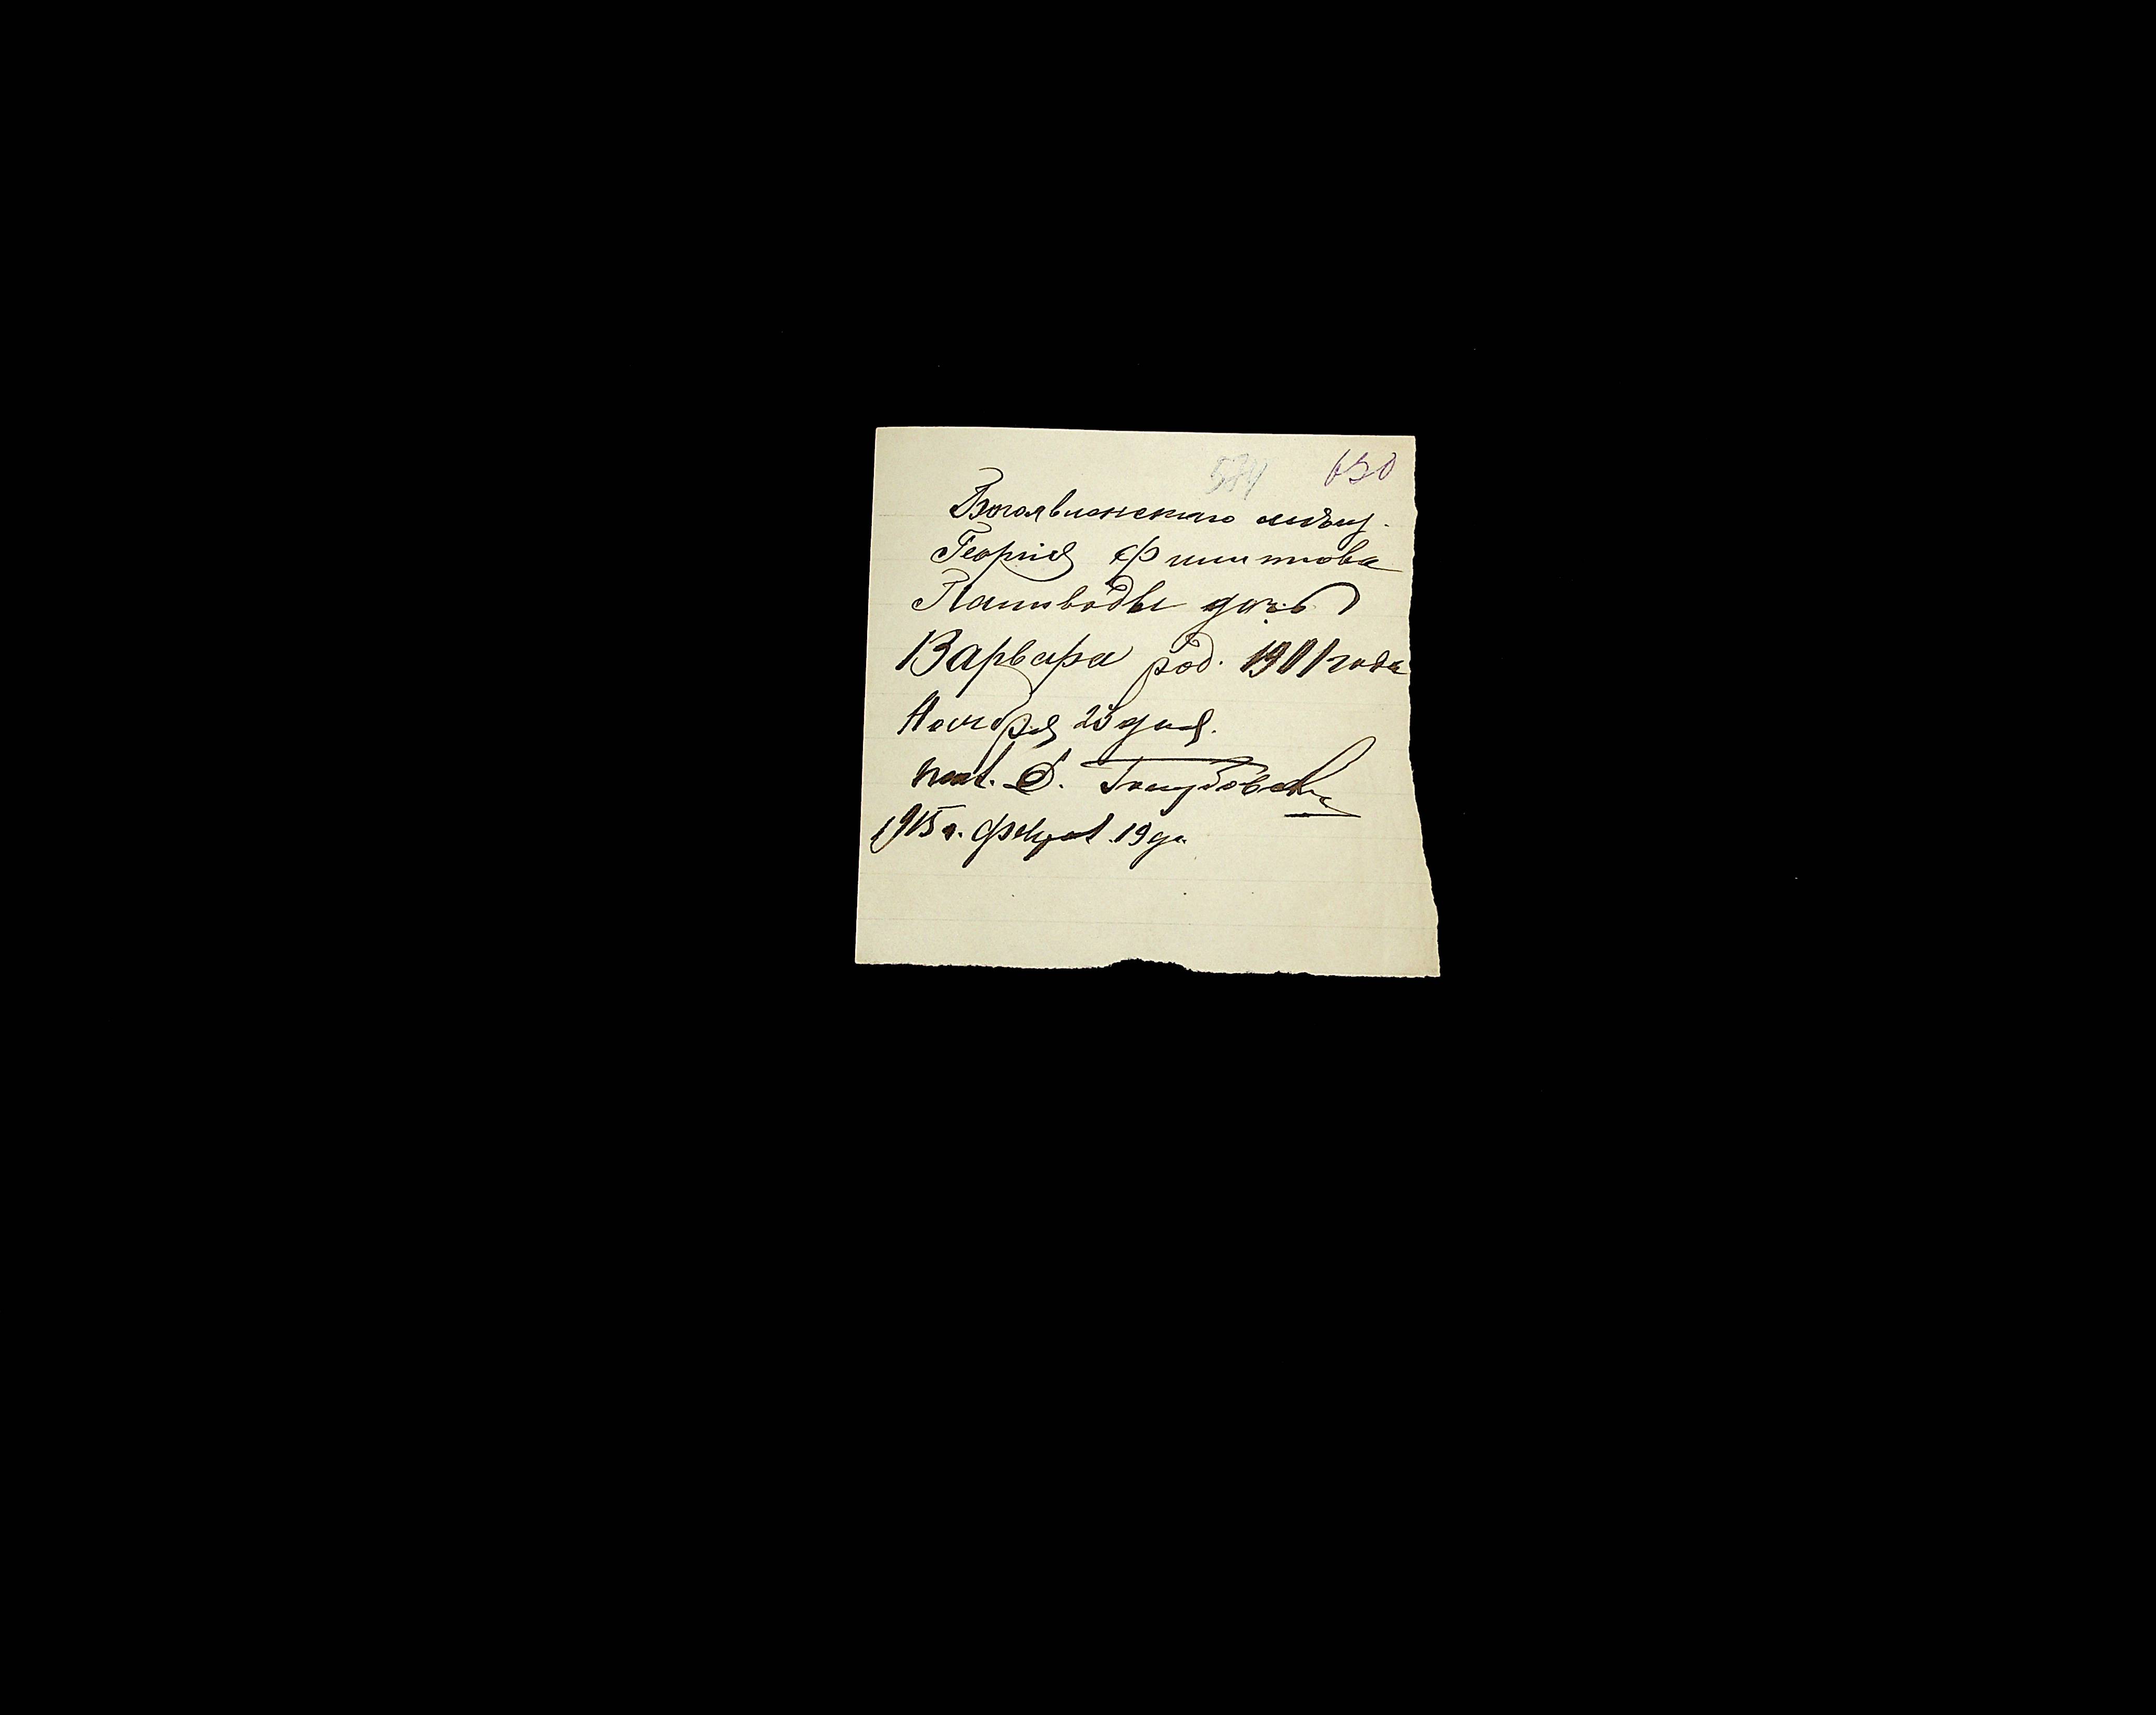 584 650
Богоявленскаго мѣщ.
Георгія Филиппова
Паливоды дочь
Варвара род. 1901 года
Ноября 23 дня.
псал. Ѳ. Голубовскій
1915 г. Феврал. 19 дн.